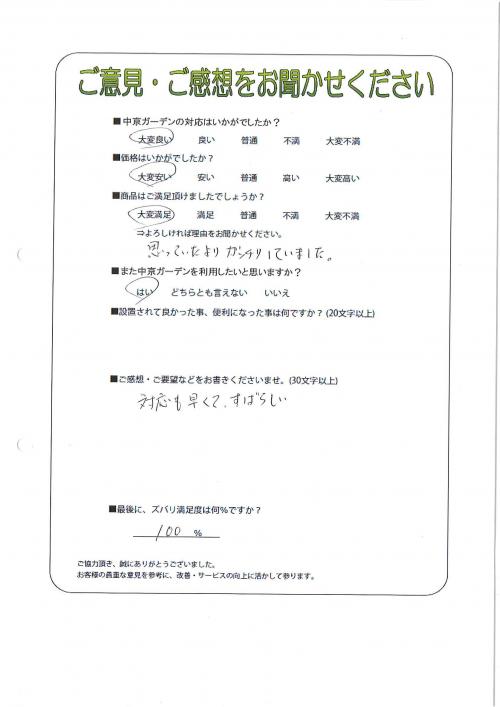 ご意見・ご感想をお聞かせください
■中京ガーデンの対応はいかがでしたか？
大変良い 良い 普通 不満 大変不満
■価格はいかがでしたか？
大変安い 安い 普通 高い 大変高い
■商品はご満足頂けましたでしょうか？
大変満足 満足 普通 不満 大変不満
⇒よろしければ理由をお聞かせください。
思っていたより ガッチリしていました。
■また中京ガーデンを利用したいと思いますか？
はい どちらとも言えない いいえ
■設置されて良かった事、便利になった事は何ですか？(20文字以上)
■ご感想・ご要望などをお書きくださいませ。(30文字以上)
対応も早くて、すばらしい
■最後に、ズバリ満足度は何%ですか？
100 %
ご協力頂き、誠にありがとうございました。
お客様の貴重な意見を参考に、改善・サービスの向上に活かして参ります。